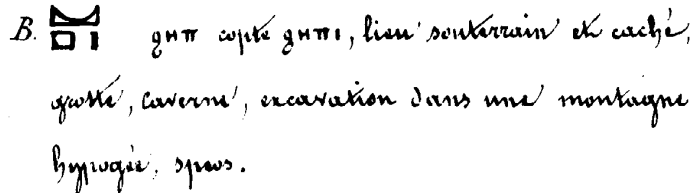 B. ϩⲏⲡ copte ϩⲏⲡⲓ, lieu souterrain et caché,
grotte, caverne, excavation dans une montagne
hypogée, speos.